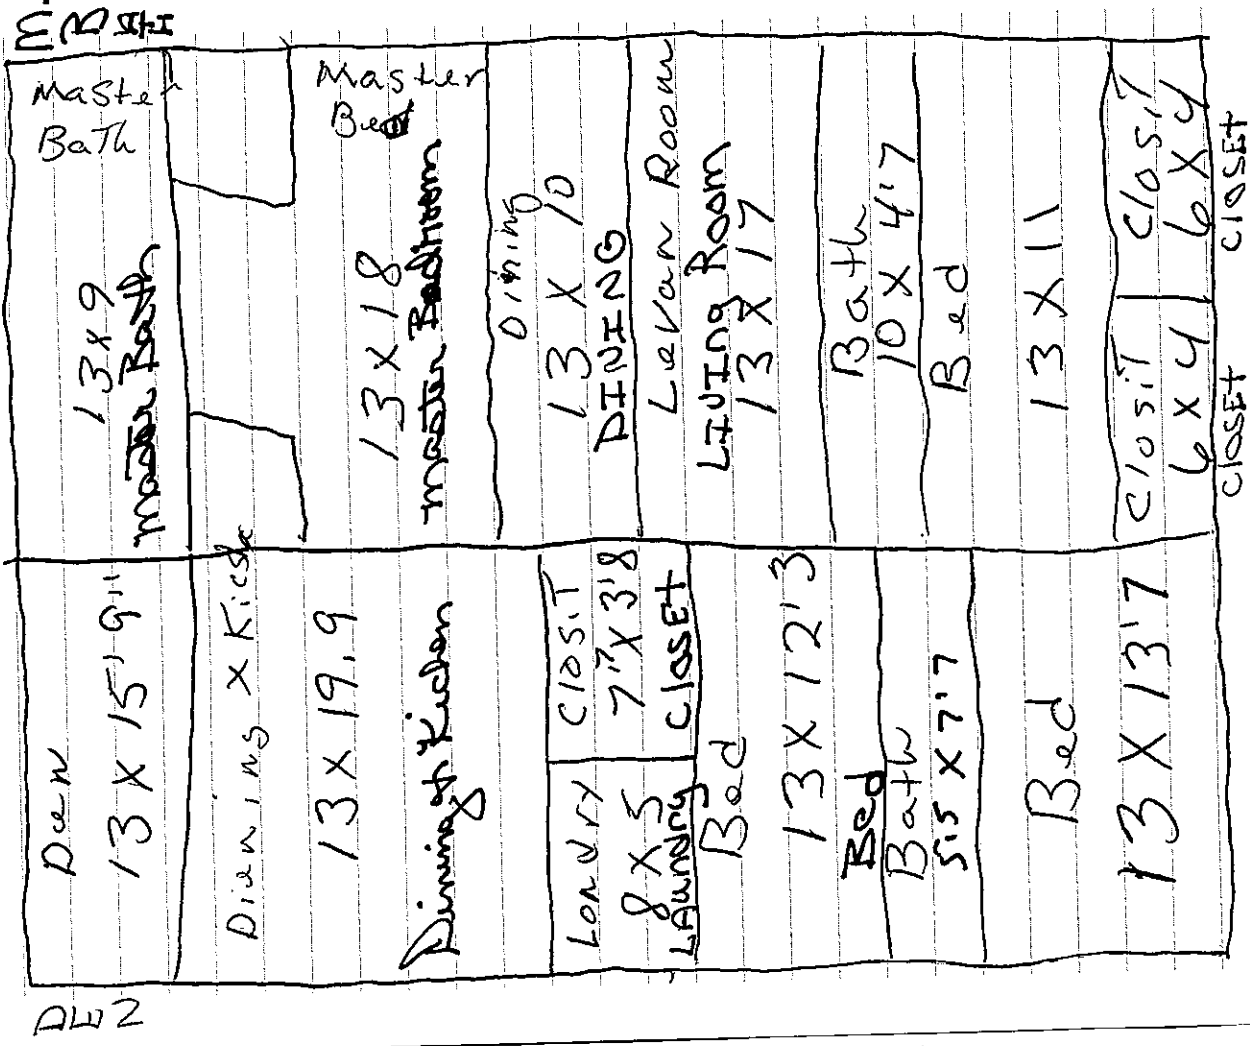 M.
BATH
Master
Bath
13x9
Master Bath
Master
Bed
13 x 18
Master Bedroom
Dining
13 X 10
DINING
Levan Room
LIVIng Room
13 X 17
Bath
10 X 4'7
Bed
13 X 11
ClosiT
6 X 4
CLOSET
ClosiT
6 X 4
CLOSET
Den
13 X 15'9"
Diening X Kicsh
13 X 19.9
Dining & Kichen
ClosiT
7" X 3'8
ClosEt
Londry
8 X 5
LAundry
Bed
13 X 12'3
Bed
Bath
5'5 X 7'7
Bed
13 X 13'7
DEN